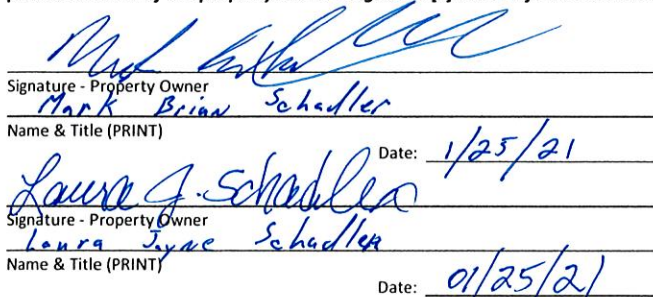 Signature - Property Owner
Mark Brian Schadler
Name & Title (PRINT)
Date: 1/25/21
Laura J. Schadler
Signature - Property Owner
Laura Jayne Schadler
Name & Title (PRINT)
Date: 01/25/21